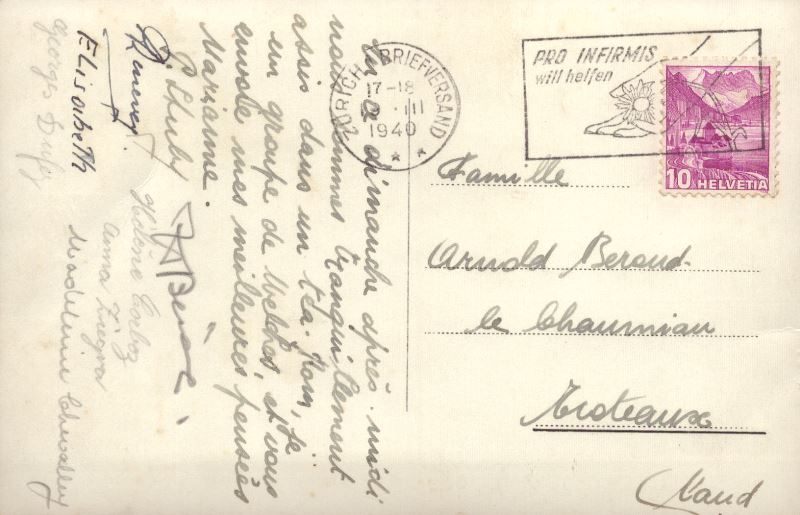 En ce dimanche après-midi
nous sommes tranquillement
assis dans un téa-Room,
un groupe de Welches, et vous
envoie mes meilleures pensées
Marianne.
ABeroud.
Elisabeth
Georges
Hélène Corboz
Anna
Madeleine Chevalley
ZÜRICH BRIEFVERSAND
17-18
III
1940
PRO INFIRMIS
will helfen
10 HELVETIA
Famille
Arnold Beroud.
le Chaumiau
Ecoteaux
Vaud